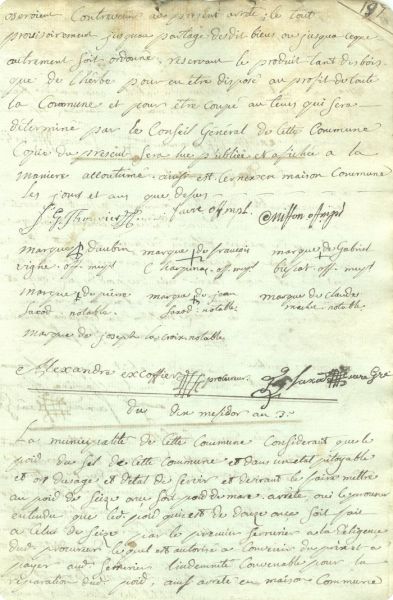 oseroient Contrevenir au présent arrêté; le tout
provisoirement jusqu'au partage desdit bieus ou jusqua ceque
autrement soit ordonné, réservant le produit tant des bois
que de l'herbe pour en être disposé au profit de toute
la Commune et pour être coupé au tems qui sera
déterminé par le Conseil Général de Cette Commune
Copie du présent sera lue publiée et affichée a la
maniere accoutumé ainsi est en maison Commune
les jours et ans que dessus
J. G. favre off mpl
marque d'aubin marque de françois marque de Gabriel
off. mupl C off. mupl off. mupl
marque de pierre marque de jean marque de Claude
notable. notable. notable
marque de joseph la croix notable
Alexandre excoffier procureur Gre
du dix mesidor au 3e
La municipalité de Cette Commune Considérant que le
poid du sel de Cette Commune est dans un etat pitoyable
et du sage et d'etat de servir et desirant le faire mettre
au poid de seize once poid de marc arrête, oui le procureur
entendu que led. poid qui est de douze once soit fait
a Celui de seize par le premier serrurier a la diligence
dud. procureur lequel est autorisé a Convenir du prix et a
payer aud. serrurier l'indemnité Convenable pour la
réparation dud. poid, ainsi arrêté en maison Commune